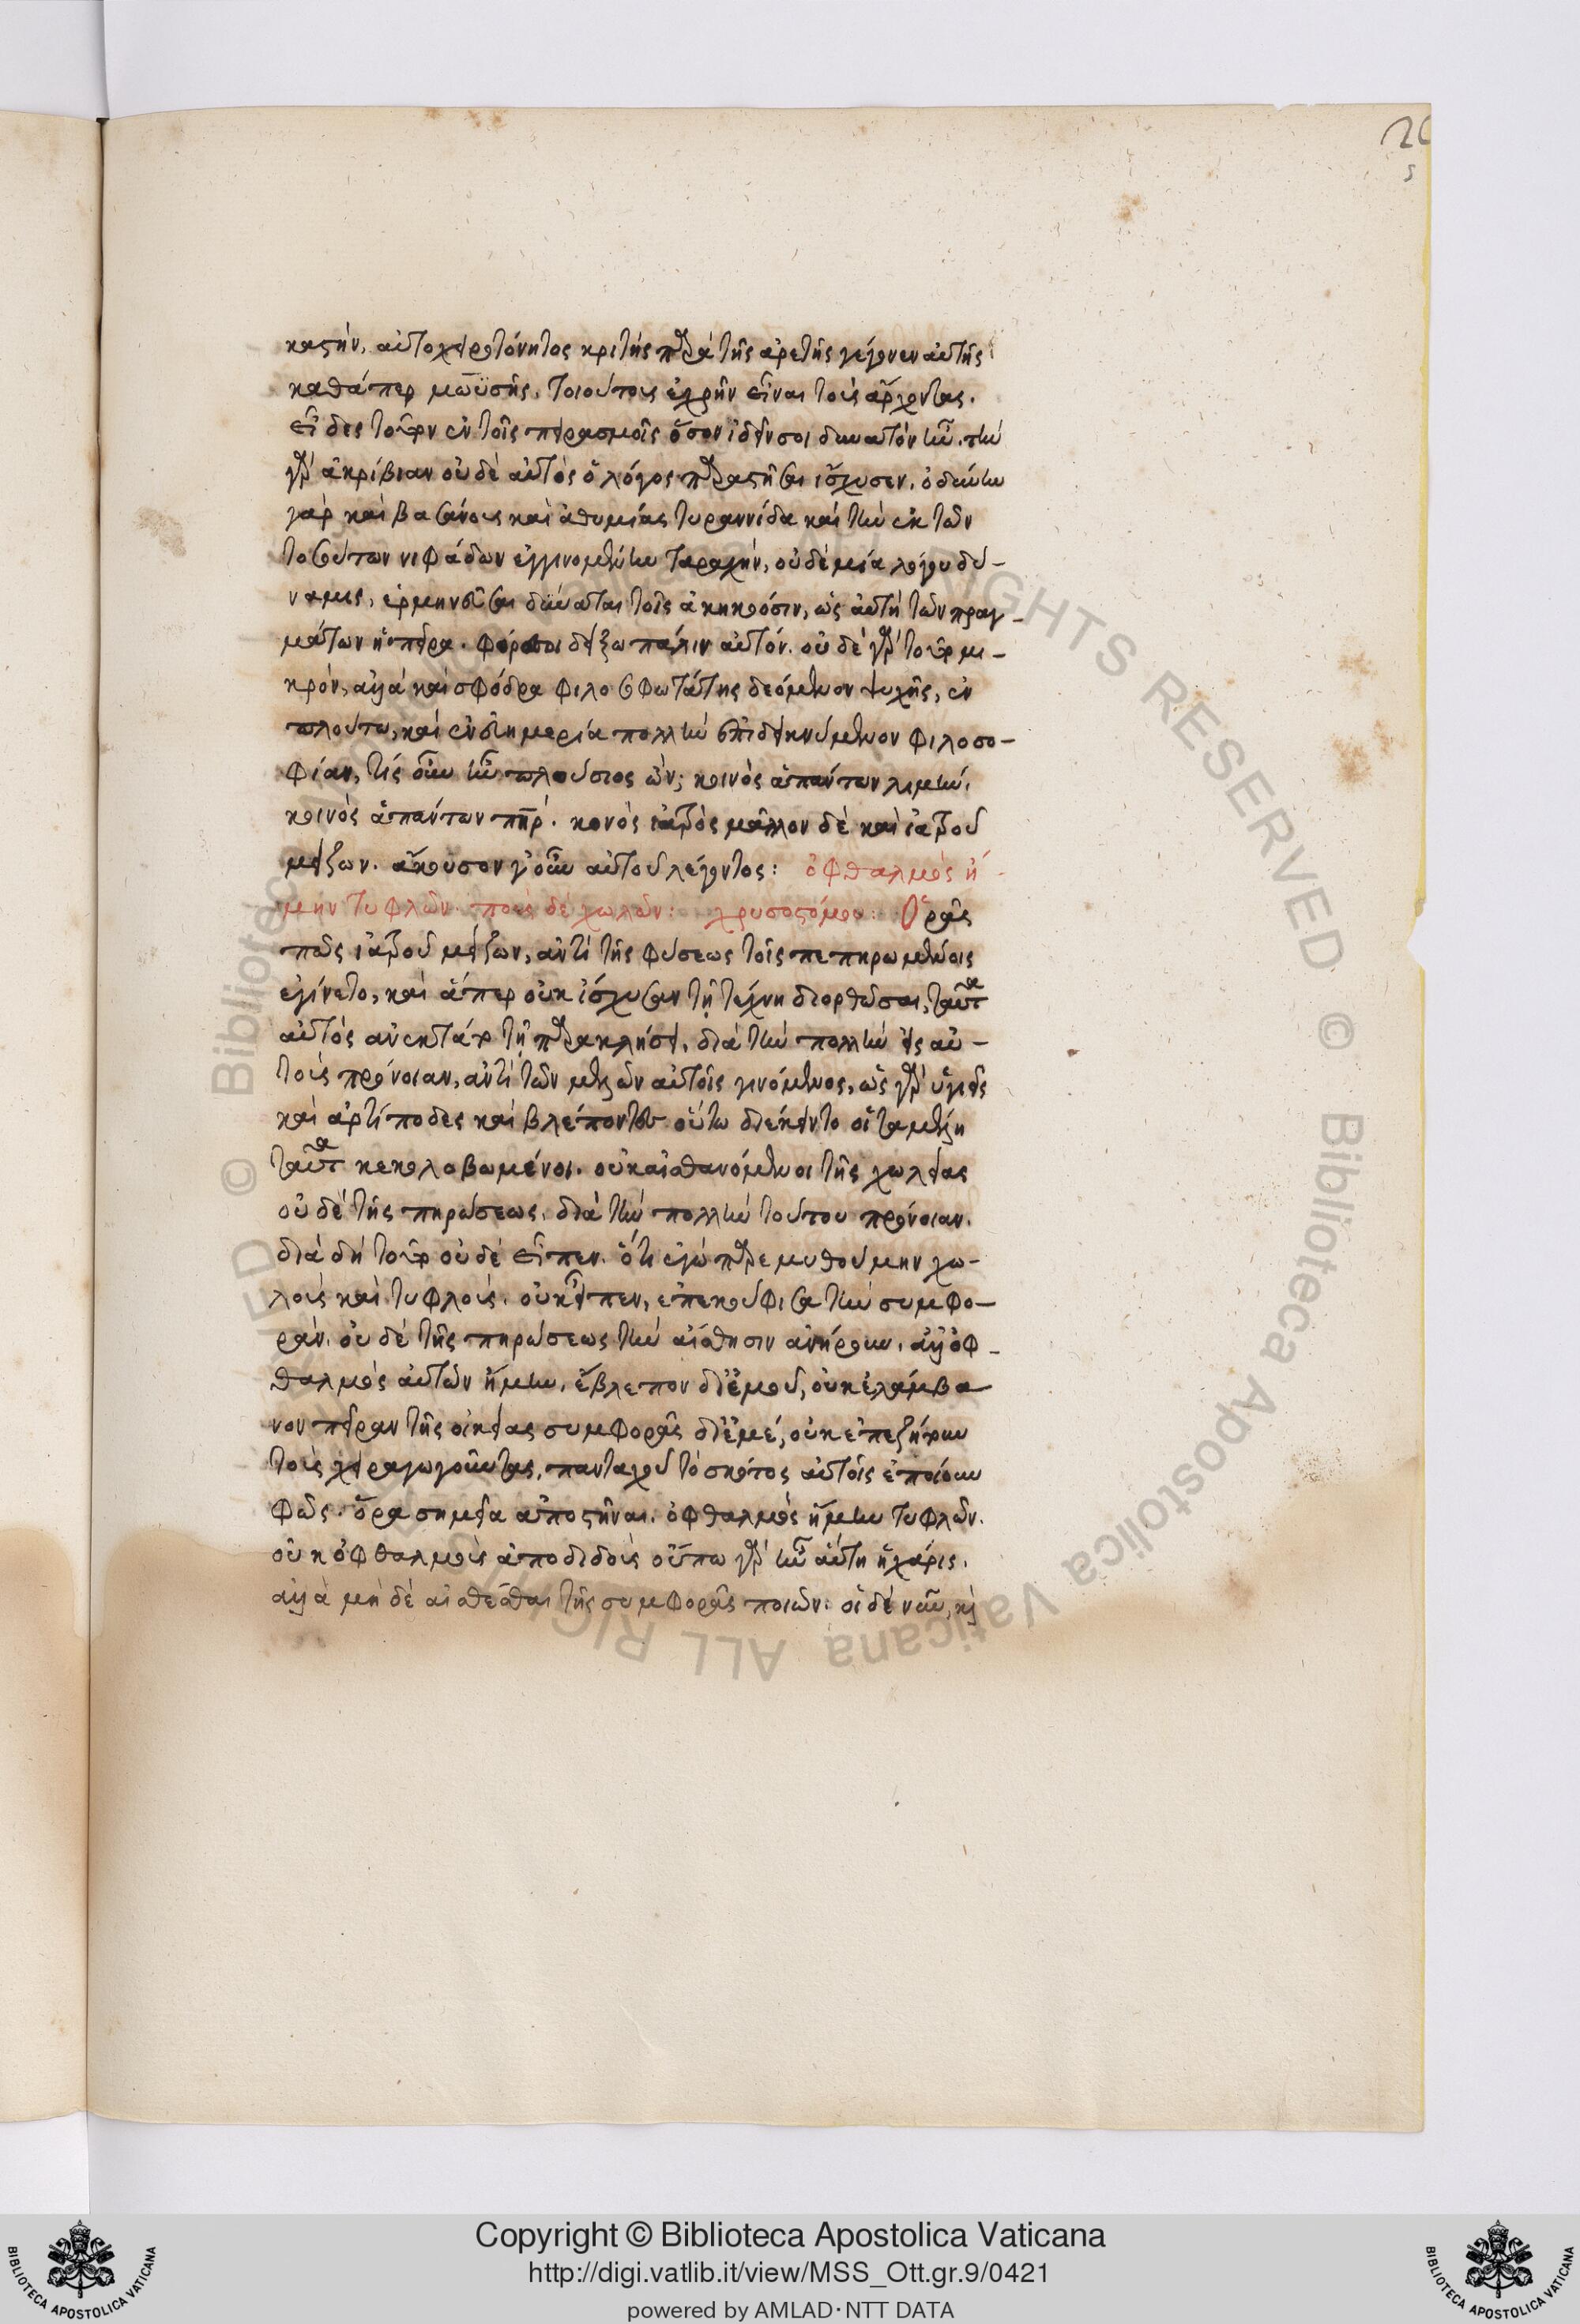 καστήν, αὐτοχειροτόνητος κριτὴς παρὰ τῆς ἀρετῆς γέγονεν αὐτῆς
καθάπερ μωϋσῆς. τοιούτους ἐχρῆν εἶναι τοὺς ἄρχοντας.
εἶδες τοῦτον ἐν τοῖς πειρασμοῖς ὅσον ἰδεῖν σοι δυνατὸν ἦν. τὴν
γὰρ ἀκρίβιαν οὐδὲ αὐτὸς ὁ λόγος παραστῆσαι ἴσχυσεν. ὀδύνην
γὰρ καὶ βασάνους καὶ ἀθυμίας τυραννίδα καὶ τὴν ἐκ τῶν
τοσούτων νιφάδων ἐγγινομένην ταραχήν, οὐδὲ μία λόγου δύ-
ναμις, ἑρμηνεῦσαι δύναται τοῖς ἀκηκοόσιν, ὡς αὐτὴ τῶν πραγ-
μάτων ἡ πεῖρα. φέρε σοι δείξω πάλιν αὐτόν. οὐδὲ γὰρ τοῦτο μι-
κρόν, ἀλλὰ καὶ σφόδρα φιλοσοφωτάτης δεόμενον ψυχῆς, ἐν
πλούτω, καὶ ἐν εὐημερία πολλὴν ἐπιδεικνύμενον φιλοσο-
φίαν, τίς οὖν ἦν πλούσιος ὤν; κοινὸς ἁπάντων λιμήν.
κοινὸς ἁπάντων πηρ. κοινὸς ἰατρὸς μᾶλλον δὲ καὶ ἰατροῦ
μείζων. ἄκουσον γοῦν αὐτοῦ λέγοντος: ὀφθαλμὸς ἤ-
μην τυφλῶν. ποὺς δὲ χωλῶν: χρυσοστόμου: Ὁρᾶς
πῶς ἰατροῦ μείζων, ἀντὶ τῆς φύσεως τοῖς πεπηρωμένοις
ἐγίνετο, καὶ ἅπερ οὐκ ἴσχυσαν τῇ τέχνη διορθῶσαι, ταῦτα
αὐτὸς ἀνεκτᾶτο τῇ παρακλήσει, διὰ τὴν πολλὴν εἰς αὐ-
τοὺς πρόνοιαν, ἀντὶ τῶν μελῶν αὐτοῖς γινόμενος, ὡς γὰρ ὑγιεῖς
καὶ ἀρτίποδες καὶ βλέποντες οὕτω διέκειντο οἱ τὰ μέλη
ταῦτα κεκολοβωμένοι. οὐκ αἰσθανόμενοι τῆς χωλείας
οὐδὲ τῆς πηρώσεως. διὰ τὴν πολλὴν τούτου πρόνοιαν.
διὰ δὴ τοῦτο οὐδὲ εἶπεν. ὅτι ἐγὼ παρεμυθούμην χω-
λοὺς καὶ τυφλούς. οὐκ εἶπεν, ἐπεκούφισα τὴν συμφο-
ράν. οὐδὲ τῆς πηρώσεως τὴν αἴσθησιν ἀνήρουν. ἀλλ' ὀφ-
θαλμὸς αὐτῶν ἤμην. ἔβλεπον δι' ἐμοῦ, οὐκ ἐλάμβα
νον πεῖραν τῆς οἰκείας συμφορᾶς δι' ἐμέ, οὐκ ἐπεζήτουν
τοὺς χειραγωγοῦντας, πανταχοῦ τὸ σκότος αὐτοῖς ἐποίουν
φῶς. ὅρα σημεῖα ἀποστῆναι. ὀφθαλμὸς ἤμην τυφλῶν.
οὐκ ὀφθαλμοὺς ἀποδιδοὺς οὔπω γὰρ ἦν αὕτη ἡ χάρις.
ἀλλὰ μὴ δὲ αἰσθέσθαι τῆς συμφορᾶς ποιῶν. οἱ δὲ νῦν, κὶ
Copyright © Biblioteca Apostolica Vaticana
http://digi.vatlib.it/view/MSS_Ott.gr.9/0421
powered by AMLAD·NTT DATA
BIBLIOTECA APOSTOLICA VATICANA
BIBLIOTECA APOSTOLICA VATICANA
© Biblioteca Apostolica Vaticana ALL RIGHTS RESERVED